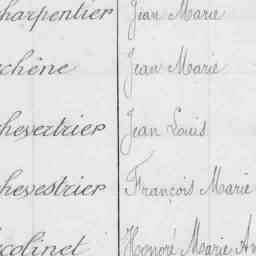 harpentier Jean Marie
chêne Jean Marie
hevertrier Jean Louis
hevestrier François Marie
colinet Honoré Marie An